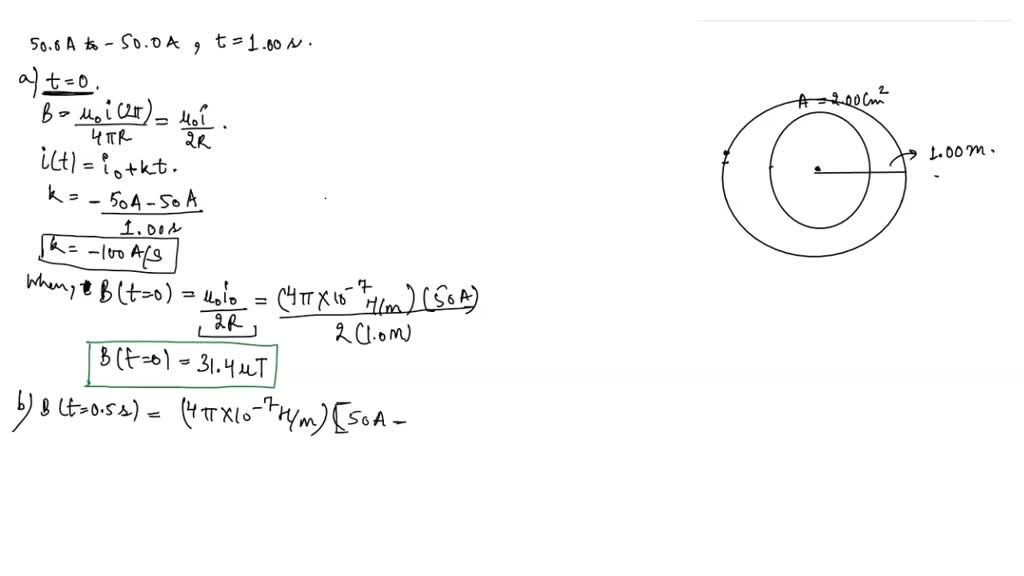 50.0A to -50.0A , t = 1.00 s.
a) t=0.
B = μ₀i(2π)/4πR = μ₀i/2R .
i(t) = i₀+kt.
k = -50A-50A/1.00s
k = -100A/S
When, t B(t=0) = μ₀i₀/2R = (4π×10⁻⁷ H/m)(50A)/2(1.0M)
B(t=0) = 31.4μT
b) B(t=0.5s) = (4π×10⁻⁷ H/m)[50A -
A = 2.00cm²
1.00m.